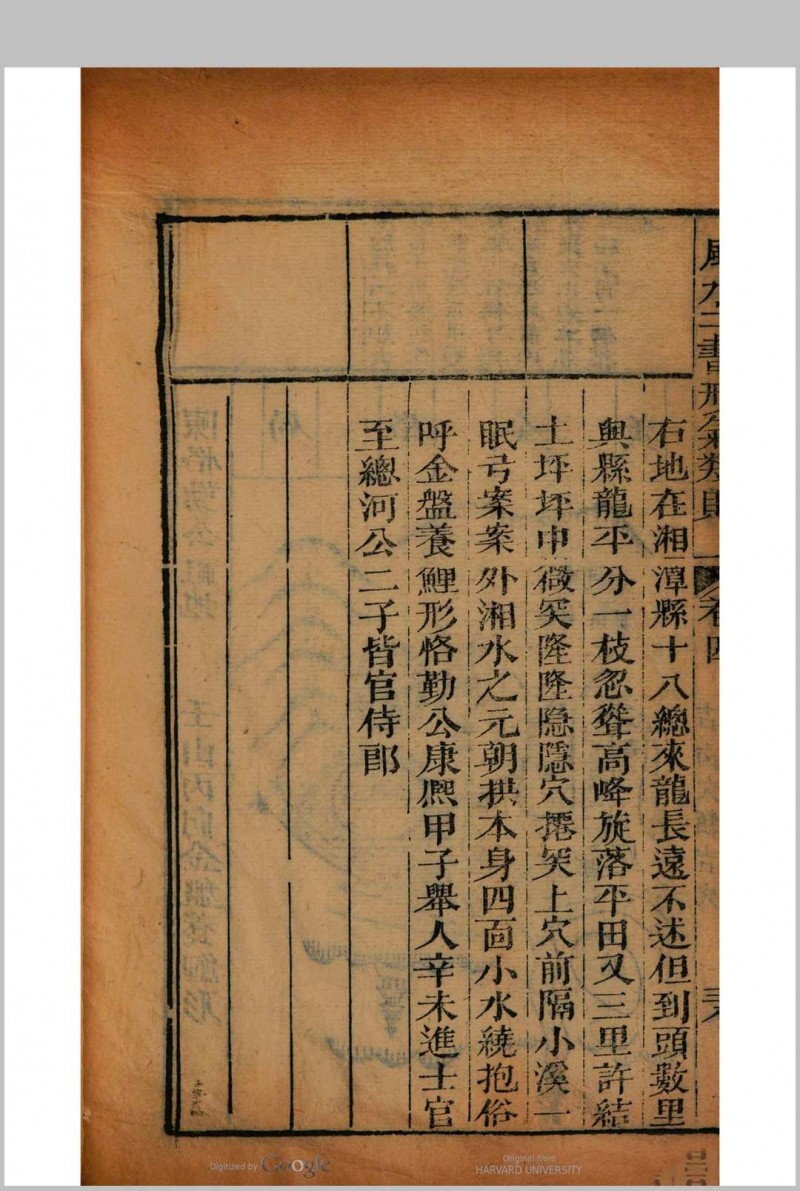 右地在湘潭縣十八總來龍長遠不述但到頭數里
與縣龍平分一枝忽聳高峰旋落平田又三里許結
土坪坪中微突隆隆隱隱穴撂突上穴前隔小溪一
眠弓案案外湘水之元朝拱本身四面小水繞抱俗
呼金盤養鯉形恪勤公康熙甲子舉人辛未進士官
至總河公二子皆官侍郎
Digitized by Google
Original from
HARVARD UNIVERSITY